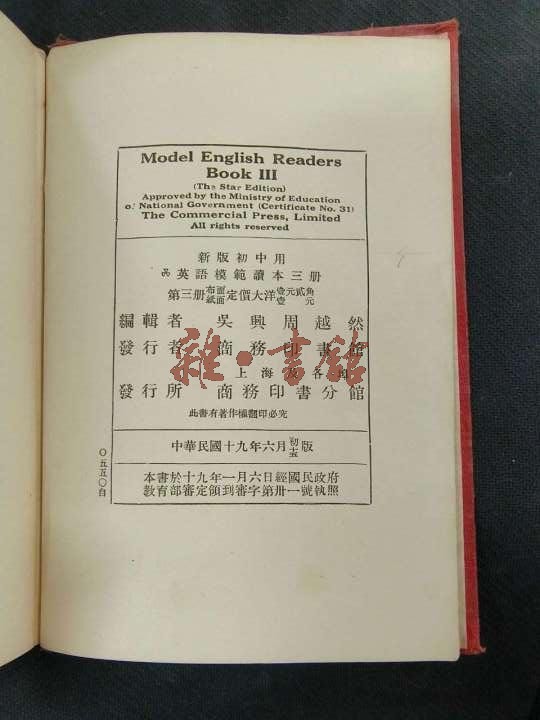 Model English Readers
Book III
(The Star Edition)
Approved by the Ministry of Education
of National Government (Certificate No. 31)
The Commercial Press, Limited
All rights reserved
新版初中用
英語模範讀本三册
第三册 布面 紙面 定價大洋 壹元貳角 壹元
編輯者 吳興周越然
發行者 商務印書館
上海及各
發行所 商務印書分館
此書有著作權翻印必究
中華民國十九年六月初版
本書於十九年一月六日經國民政府
教育部審定領到審字第卅一號執照
〇五五〇自
雜·書館